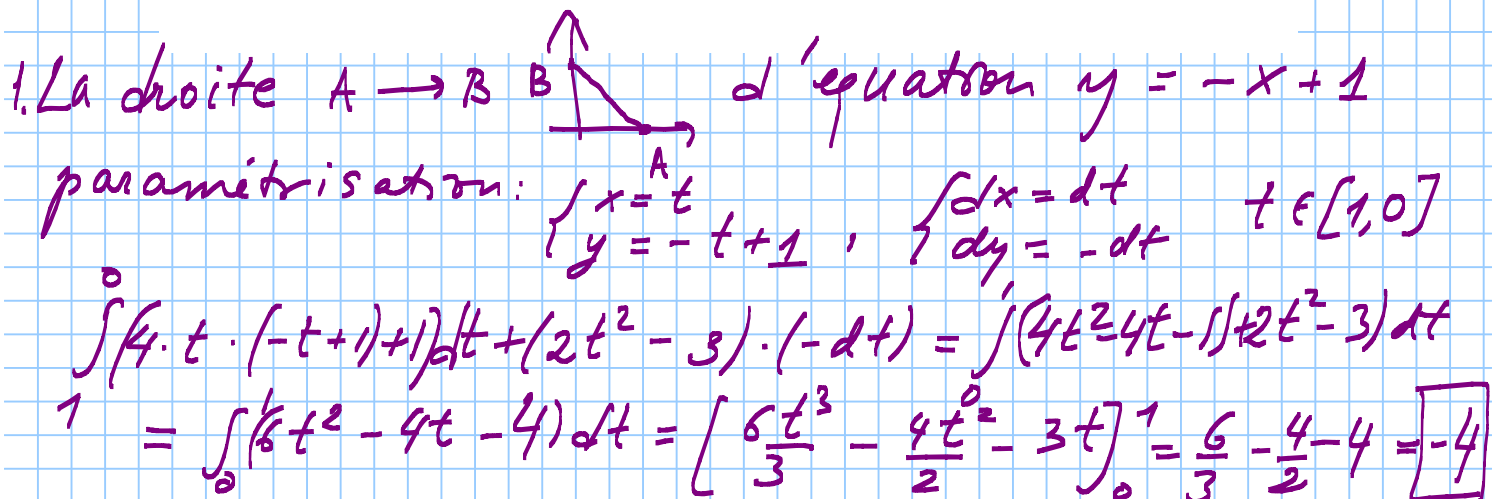 1. La droite A → B B A d'équation y = -x + 1
paramétrisation: { x = t y = -t + 1 , { dx = dt dy = -dt t ∈ [1,0]
∫₁⁰ (4·t·(-t+1)+1)dt + (2t² - 3)·(-dt) = ∫₀¹ (4t² - 4t - 1) + 2t² - 3) dt
= ∫₀¹ (6t² - 4t - 4) dt = [6t³/3 - 4t²/2 - 3t]₀¹ = 6/3 - 4/2 - 4 = -4